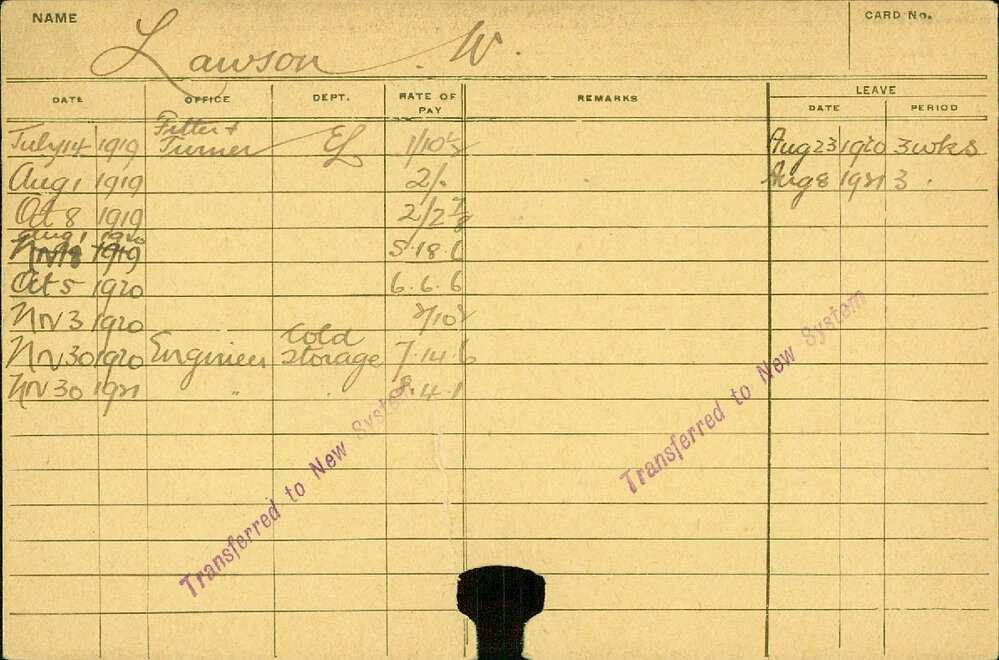 NAME
CARD No.
Lawson . W.
DATE OFFICE DEPT. RATE OF PAY REMARKS LEAVE
DATE PERIOD
July 14 1919 Fitter & Turner EL 1/10½ Aug 23 1920 3 wks
Aug 1 1919 2/- Aug 8 1921 3 .
Oct 8 1919 2/2⅞
Aug 1 1920
Nov 8 1919 5.18.6
Oct 5 1920 6.6.6
Nov 3 1920
Nov 30 1920 Engineer Cold Storage 7.14.6
Nov 30 1921 " . 8.4.1
Transferred to New System
Transferred to New System